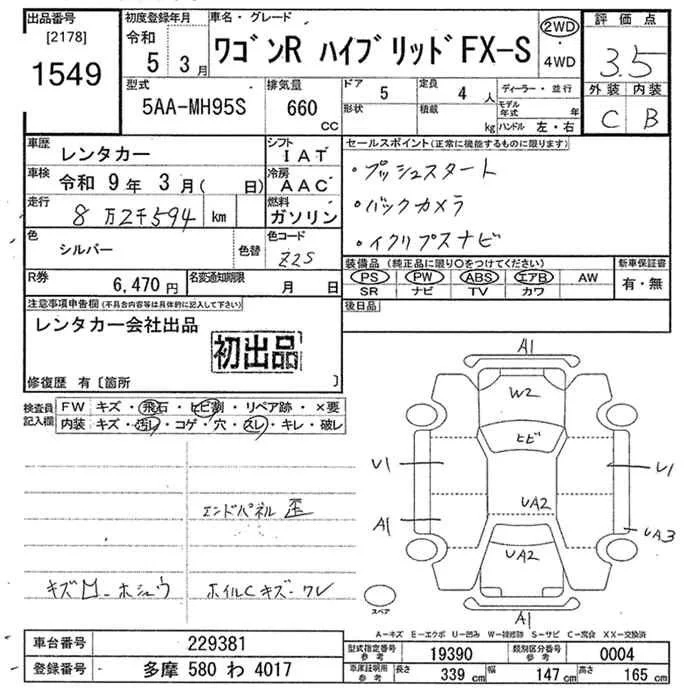 出品番号
[2178]
1549
初度登録年月
令和
5 3月
車名・グレード
ワゴンR ハイブリッドFX-S
2WD
・
4WD
評価点
3.5
外装 内装
C B
型式
5AA-MH95S
排気量
660
CC
ドア 5
形状
定員 4 人
積載 kg
ディーラー・並行
モデル年式 年
ハンドル 左・右
車歴
レンタカー
シフト
IAT
車検
令和 9年 3月( 日)
冷房
AAC
走行
8万2千594 km
燃料
ガソリン
色
シルバー
色替
色コード
Z2S
R券
6,470円
名変通知期限
月 日
セールスポイント(正常に機能するものに限ります)
・プッシュスタート
・バックカメラ
・イクリプスナビ
装備品(純正品に限り○をつけてください)
PS PW ABS エアB AW
SR ナビ TV カワ
新車保証書
有・無
後日品
注意事項申告欄(不具合内容等は具体的に記入して下さい)
レンタカー会社出品
初出品
修復歴 有〔箇所 〕
検査員
記入欄
FW キズ・飛石・ヒビ割・リペア跡・×要
内装 キズ・汚レ・コゲ・穴・スレ・キレ・破レ
エンドパネル 歪
ホイルCキズ-ワレ
A1
W2
ヒビ
U1
U1
UA2
A1
UA3
UA2
A1
スペア
A-キズ E-エクボ U-凹み W-補修跡 S-サビ C-腐食 XX-交換済
車台番号
229381
登録番号
多摩 580 わ 4017
型式指定番号
参考
19390
類別区分番号
参考
0004
車庫証明用
参考
長さ
339 cm
幅
147 cm
高さ
165 cm